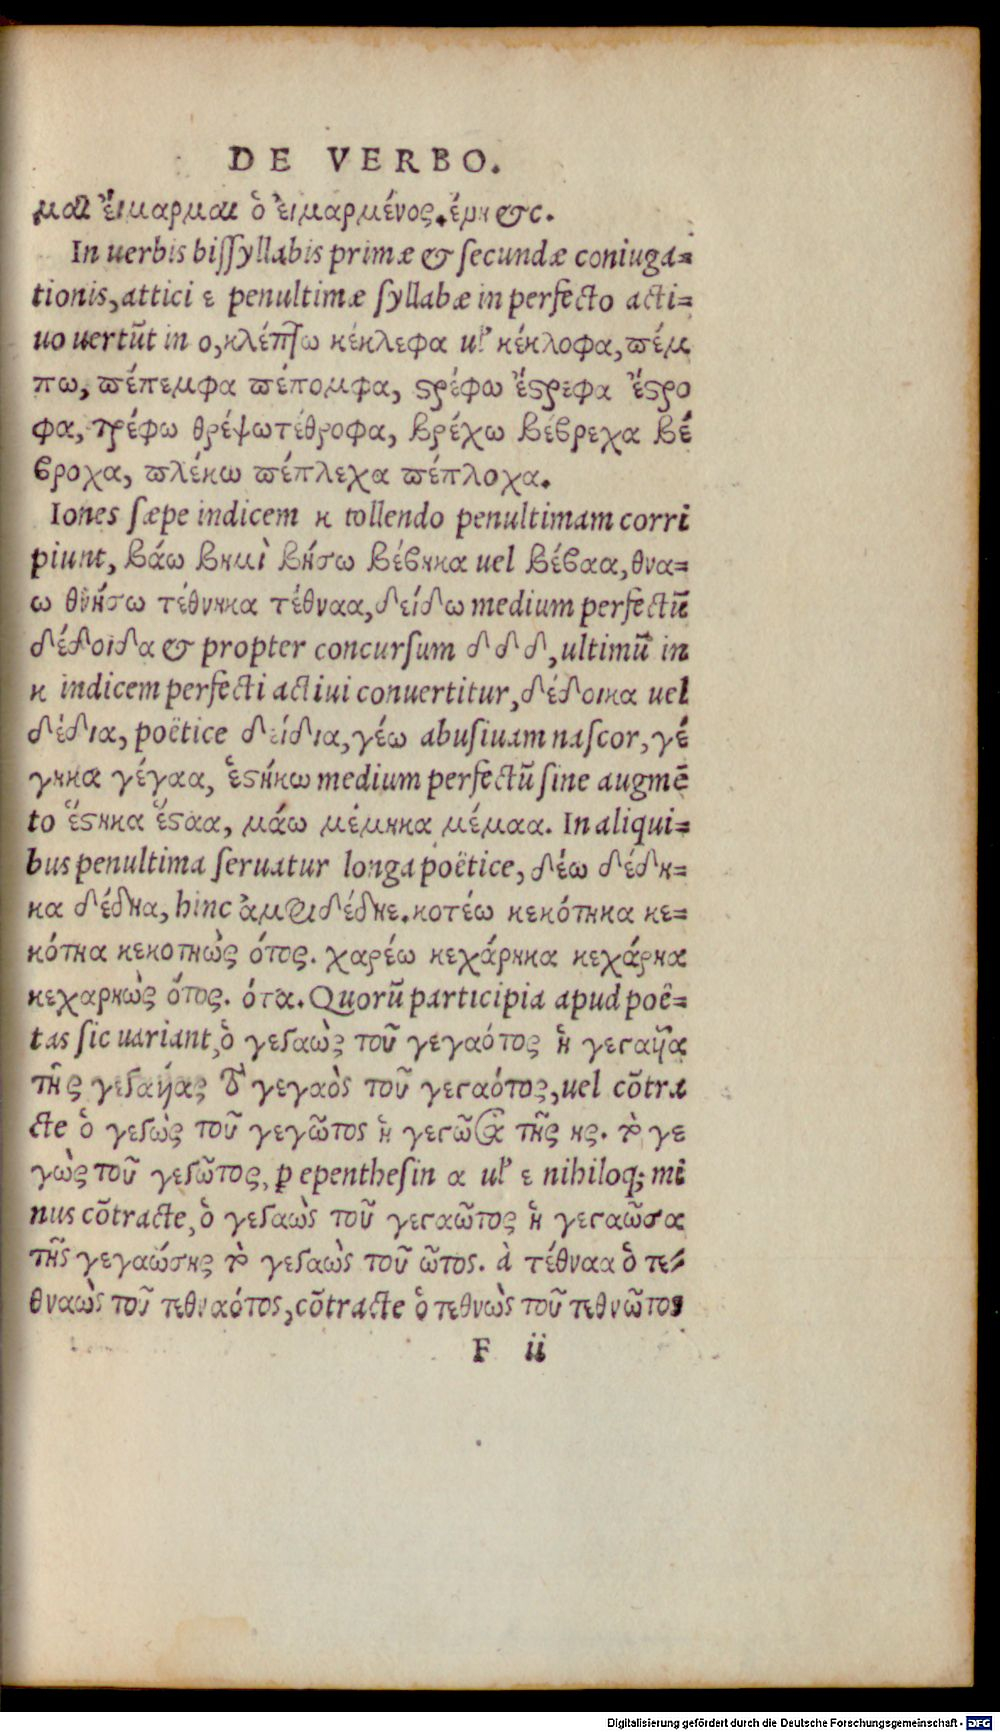 DE VERBO.
μαι εἵμαρμαι ὁ εἱμαρμένος. ἐμη &c.
In uerbis bissyllabis primæ & secundæ coniuga=
tionis, attici ε penultimæ syllabæ in perfecto acti=
uo uertūt in ο, κλέπτω κέκλεφα ul' κέκλοφα, πέμ
πω, πέπεμφα πέπομφα, ϛρέφω ἔϛρεφα ἔϛρο
φα, τρέφω θρέψω τέθροφα, βρέχω βέβρεχα βέ
βροχα, πλέκω πέπλεχα πέπλοχα.
Iones sæpe indicem κ tollendo penultimam corri
piunt, βάω βημὶ βήσω βέβηκα uel βέβαα, θνα=
ω θνήσω τέθνηκα τέθναα, δείδω medium perfectū
δέδοιδα & propter concursum δ δ δ, ultimū in
κ indicem perfecti actiui conuertitur, δέδοικα uel
δέδια, poëtice δείδια, γέω abusiuam nascor, γέ
γηκα γέγαα, ἑϛήκω medium perfectū sine augmē
to ἕϛηκα ἕϛαα, μάω μέμηκα μέμαα. In aliqui=
bus penultima seruatur longa poëtice, δέω δέδη=
κα δέδηα, hinc ἀμφιδέδηε. κοτέω κεκότηκα κε=
κότηα κεκοτηὼς ότος. χαρέω κεχάρηκα κεχάρηα
κεχαρηὼς ότος. ότα. Quorū participia apud poë=
tas sic uariant, ὁ γεγαὼς τοῦ γεγαότος ἡ γεγαῆα
τῆς γεγαήας τὸ γεγαὸς τοῦ γεγαότος, uel cōtra
cte ὁ γεγὼς τοῦ γεγῶτος ἡ γεγῶσα τῆς ης. τὸ γε
γὼς τοῦ γεγῶτος, p epenthesin α ul' ε nihiloq; mi
nus cōtracte, ὁ γεγαὼς τοῦ γεγαῶτος ἡ γεγαῶσα
τῆς γεγαώσης τὸ γεγαὼς τοῦ ῶτος. à τέθναα ὁ τε=
θναὼς τοῦ τεθναότος, cōtracte ὁ τεθνὼς τοῦ τεθνῶτος
F ii
Digitalisierung gefördert durch die Deutsche Forschungsgemeinschaft - DFG